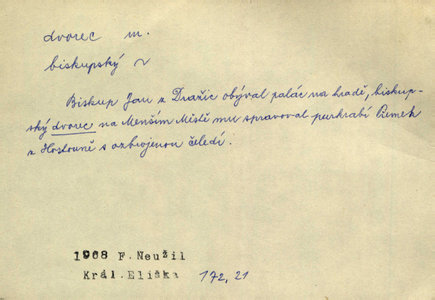 dvorec m.
biskupský ~
Biskup Jan z Dražic obýval palác na hradě, biskup-
ský dvorec na Menším Městě mu spravoval purkrabí Přemek
z Hostouně s ozbrojenou čeledí.
1908 F. Neužil
Král. Eliška 172, 21